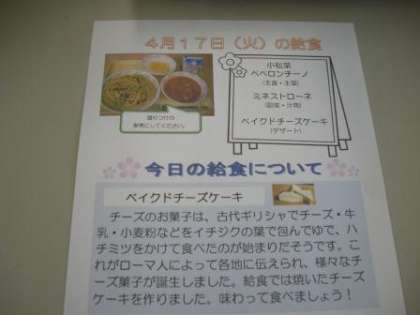 4月17日(火)の給食
小松菜
ペペロンチーノ
(主食・主菜)
ミネストローネ
(副菜・汁物)
ベイクドチーズケーキ
(デザート)
盛りつけの
参考にしてください。
今日の給食について
ベイクドチーズケーキ
チーズのお菓子は、古代ギリシャでチーズ・牛
乳・小麦粉などをイチジクの葉で包んでゆで、ハ
チミツをかけて食べたのが始まりだそうです。こ
れがローマ人によって各地に伝えられ、様々なチ
ーズ菓子が誕生しました。給食では焼いたチーズ
ケーキを作りました。味わって食べましょう!